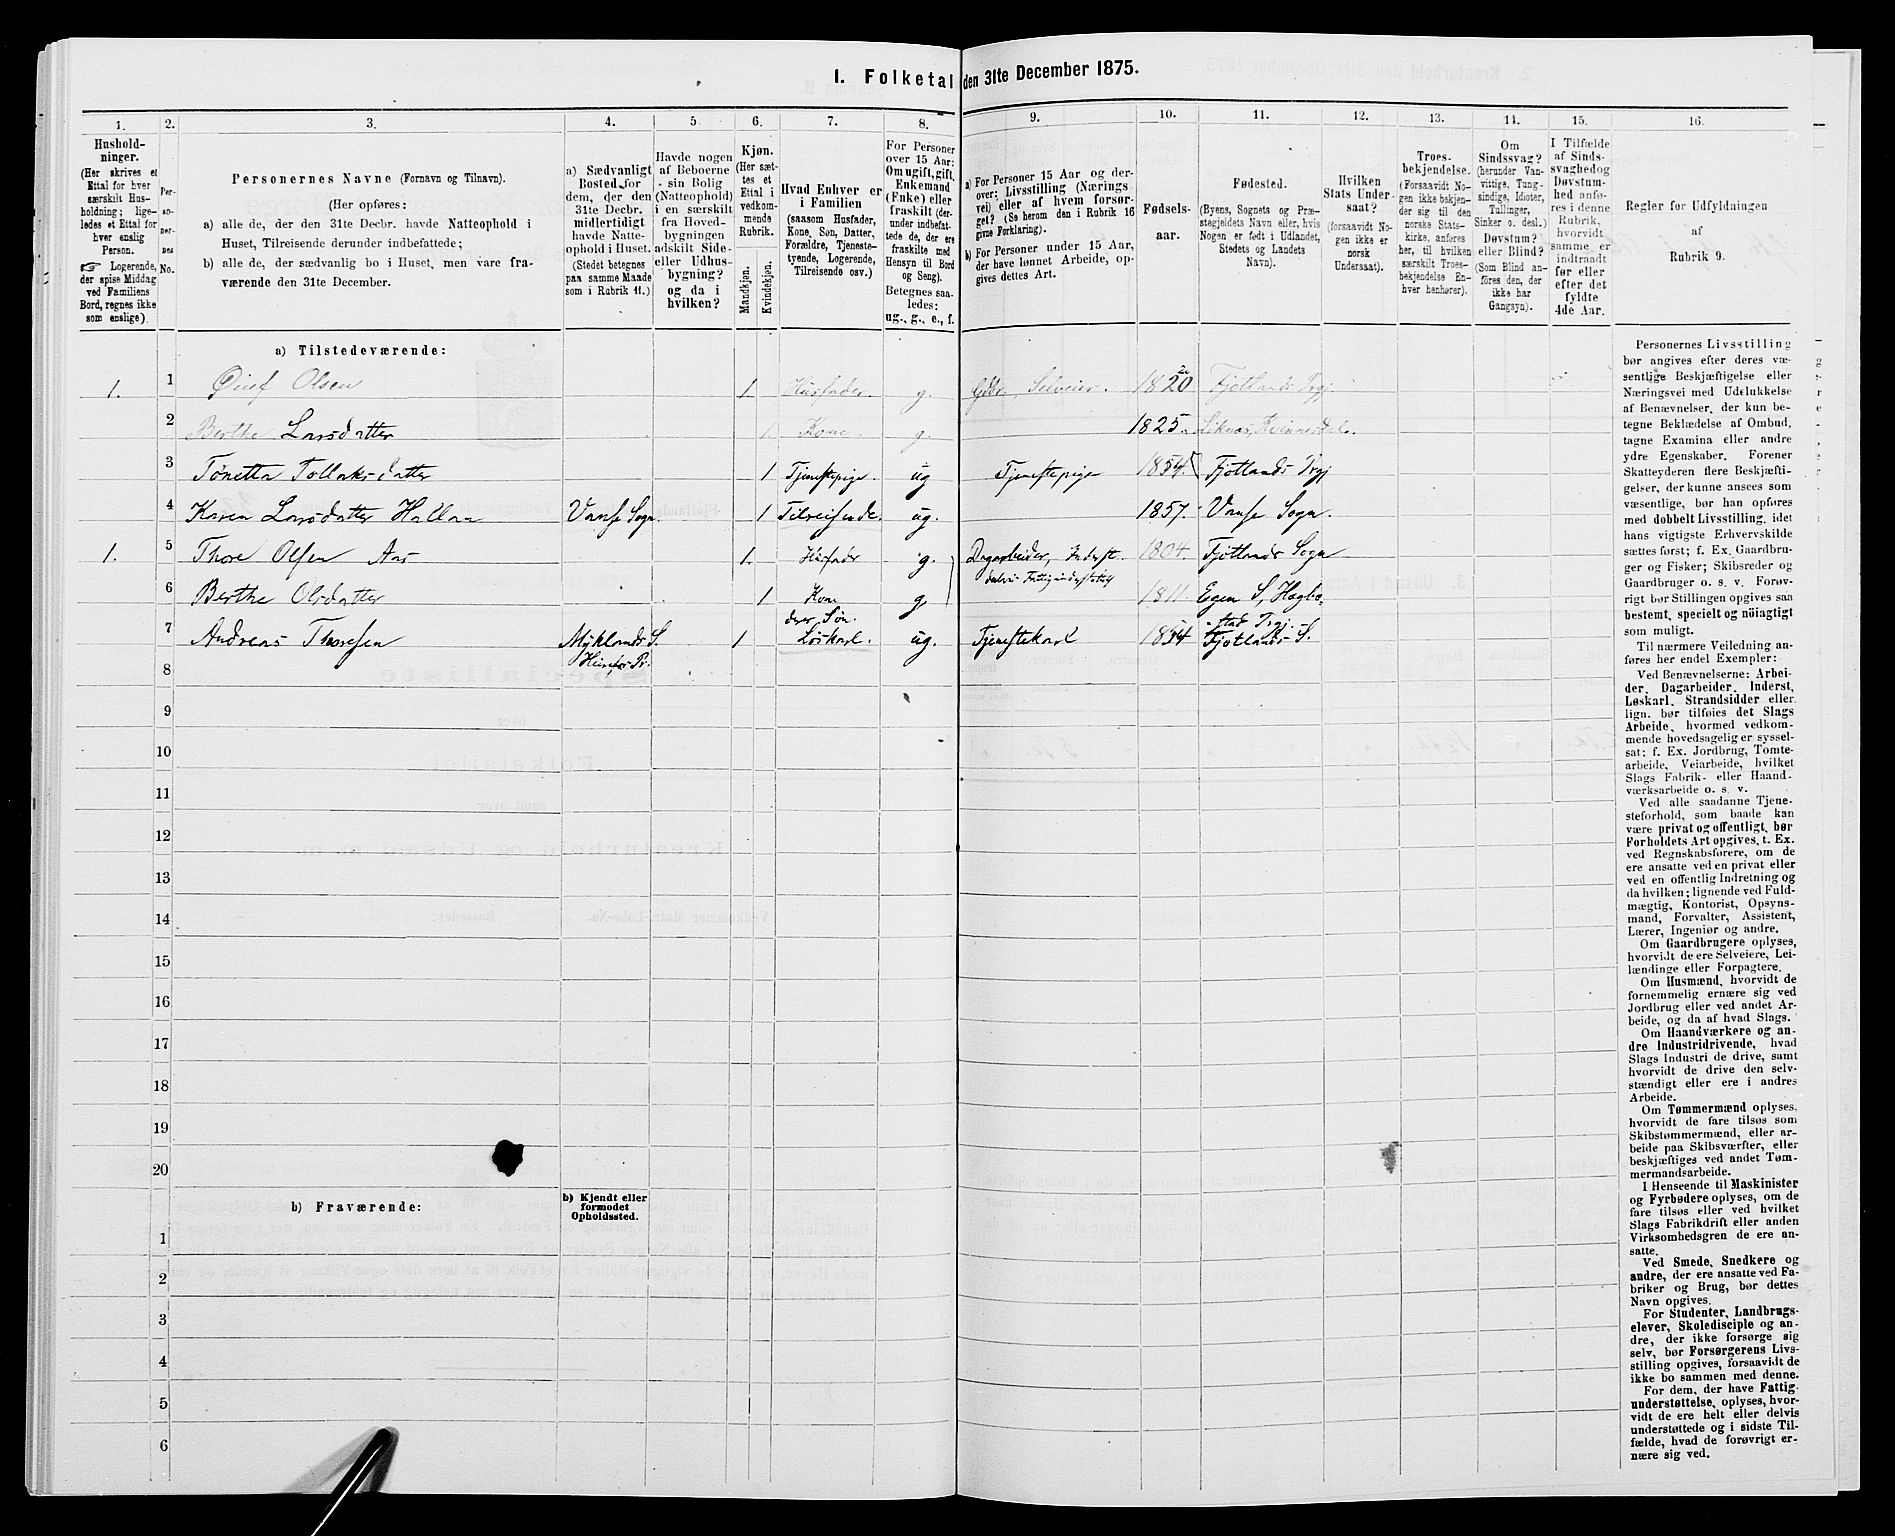 1. Folketal den 31te December 1875.
1. 2. 3. 4. 5. 6. 7. 8. 9. 10. 11. 12. 13. 14. 15. 16.
Hushold-
ninger.
(Her skrives et
Ettal for hver
særskilt Hus-
holdning; lige-
ledes et Ettal for
hver enslig
Person.
☞ Logerende,
der spise Middag
ved Familiens
Bord, regnes ikke
som enslige).
Per-
so-
ner-
nes
No.
Personernes Navne (Fornavn og Tilnavn).
(Her opføres:
a) alle de, der den 31te Decbr. havde Natteophold i
Huset, Tilreisende derunder indbefattede;
b) alle de, der sædvanlig bo i Huset, men vare fra-
værende den 31te December.
a) Sædvanligt
Bosted for
dem, der den
31te Decbr.
midlertidigt
havde Natte-
ophold i Huset.
(Stedet betegnes
paa samme Maade
som i Rubrik 11.)
Havde nogen
af Beboerne
sin Bolig
(Natteophold)
i en særskilt
fra Hoved-
bygningen
adskilt Side-
eller Udhus-
bygning?
og da i
hvilken?
Kjøn.
(Her sæt-
tes et
Ettal i
vedkom-
mende
Rubrik.
Mandkjøn.
Kvindekjøn.
Hvad Enhver er
i Familien
(saasom Husfader,
Kone, Søn, Datter,
Forældre, Tjeneste-
tyende, Logerende,
Tilreisende osv.)
For Personer
over 15 Aar:
Om ugift, gift,
Enkemand
(Enke) eller
fraskilt (der-
under indbefat-
tede de, der ere
fraskilte med
Hensyn til Bord
og Seng).
Betegnes saa-
ledes:
ug., g., e., f.
a) For Personer 15 Aar og der-
over: Livsstilling (Nærings-
vei) eller af hvem forsør-
get? (Se herom den i Rubrik 16
givne Forklaring).
b) For Personer under 15 Aar,
der have lønnet Arbeide, op-
gives dettes Art.
Fødsels-
aar.
Fødested.
(Byens, Sognets og Præ-
stegjeldets Navn eller, hvis
Nogen er født i Udlandet,
Stedets og Landets
Navn).
Hvilken
Stats Under-
saat?
(forsaavidt No-
gen ikke er
norsk
Undersaat).
Troes-
bekjendelse.
(Forsaavidt No-
gen ikke bekjen-
der sig til den
norske Stats-
kirke, anføres
her, til hvilken
særskilt Troes-
bekjendelse En-
hver henhører).
Om
Sindssvag?
(herunder Van-
vittige, Tung-
sindige, Idioter,
Tullinger,
Sinker o. desl.)
Døvstum?
eller Blind?
(Som Blind an-
føres den, der
ikke har
Gangsyn).
I Tilfælde
af Sinds-
svaghed og
Døvstum-
hed anfø-
res i denne
Rubrik,
hvorvidt
samme er
indtraadt
før eller
efter det
fyldte
4de Aar.
Regler for Udfyldningen
af
Rubrik 9.
a) Tilstedeværende:
1. 1 Olsen 1. Husfader. g. Gdbr., Selveier. 1820 Fjotlands Prgj.
2 Berthe Larsdatter 1 Kone g. 1825. Liknæs, Kvinnesdal.
3 Tønetta Tollaksdatter 1 Tjenestepige. ug Tjenestepige 1854. Fjotlands Prgj
4 Karen Larsdatter Hallan Vanse Sogn. 1 Tilreisende. ug. 1857. Vanse Sogn.
1. 5 Thore Olsen Aas 1. Husfader g. Dagarbeider, Inderst. 1804. Fjotlands Sogn
6 Berthe Olsdatter 1 Kone g. delvis Fattigunderstøttet 1811. Egen S, Hægbo-
stad Prgj.
7 Andreas Thoresen Myklands S. 1 deres Søn. Løskarl. ug. Tjenestekarl 1854 Fjotlands S.
8
9
10
11
12
13
14
15
16
17
18
19
20
b) Fraværende:
b) Kjendt eller
formodet
Opholdssted.
1
2
3
4
5
6
Personernes Livsstilling
bør angives efter deres væ-
sentlige Beskjæftigelse eller
Næringsvei med Udelukkelse
af Benævnelser, der kun be-
tegne Beklædelse af Ombud,
tagne Examina eller andre
ydre Egenskaber. Forener
Skatteyderen flere Beskjæfti-
gelser, der kunne ansees som
væsentlige, bør han opføres
med dobbelt Livsstilling, idet
hans vigtigste Erhvervskilde
sættes først; f. Ex. Gaardbru-
ger og Fisker; Skibsreder og
Gaardbruger o. s. v. Forøv-
rigt bør Stillingen opgives saa
bestemt, specielt og nöiagtigt
som muligt.
Til nærmere Veiledning an-
føres her endel Exempler:
Ved Benævnelserne: Arbei-
der, Dagarbeider, Inderst,
Løskarl, Strandsidder eller
lign. bør tilføies det Slags
Arbeide, hvormed vedkom-
mende hovedsagelig er syssel-
sat; f. Ex. Jordbrug, Tomte-
arbeide, Veiarbeide, hvilket
Slags Fabrik- eller Haand-
værksarbeide o. s. v.
Ved alle saadanne Tjene-
steforhold, som baade kan
være privat og offentligt, bør
Forholdets Art opgives, t. Ex.
ved Regnskabsførere, om de
ere ansatte ved en privat eller
ved en offentlig Indretning og
da hvilken; lignende ved Fuld-
mægtig, Kontorist, Opsyns-
mand, Forvalter, Assistent,
Lærer, Ingeniør og andre.
Om Gaardbrugere oplyses,
hvorvidt de ere Selveiere, Lei-
lændinge eller Forpagtere.
Om Husmænd, hvorvidt de
fornemmelig ernære sig ved
Jordbrug eller ved andet Ar-
beide, og da af hvad Slags.
Om Haandværkere og an-
dre Industridrivende, hvad
Slags Industri de drive, samt
hvorvidt de drive den selv-
stændigt eller ere i andres
Arbeide.
Om Tømmermænd oplyses,
hvorvidt de fare tilsøs som
Skibstømmermænd, eller ar-
beide paa Skibsværfter, eller
beskjæftiges ved andet Tøm-
mermandsarbeide.
I Henseende til Maskinister
og Fyrbødere oplyses, om de
fare tilsøs eller ved hvilket
Slags Fabrikdrift eller anden
Virksomhedsgren de ere an-
satte.
Ved Smede, Snedkere og
andre, der ere ansatte ved Fa-
briker og Brug, bør dettes
Navn opgives.
For Studenter, Landbrugs-
elever, Skoledisciple og an-
dre, der ikke forsørge sig
selv, bør Forsørgerens Livs-
stilling opgives, forsaavidt de
ikke bo sammen med denne.
For dem, der have Fattig-
understøttelse, oplyses, hvor-
vidt de ere helt eller delvis
understøttede og i sidste Til-
fælde, hvad de forøvrigt er-
nære sig ved.